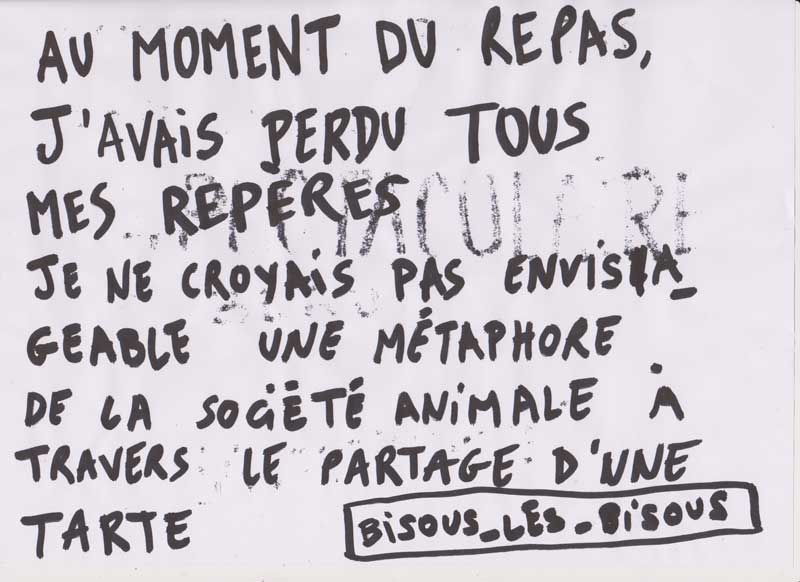 AU MOMENT DU REPAS,
J'AVAIS PERDU TOUS
MES REPÈRES
JE NE CROYAIS PAS ENVISIA_
GEABLE UNE MÉTAPHORE
DE LA SOCIÉTÉ ANIMALE À
TRAVERS LE PARTAGE D'UNE
TARTE
BISOUS_LES_BISOUS